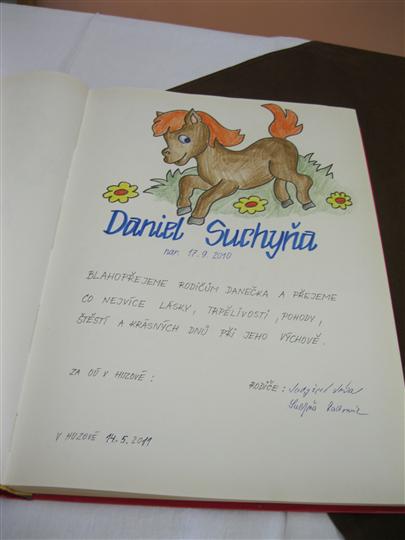 Daniel Suchyňa
nar. 17.9.2010
BLAHOPŘEJEME RODIČŮM DANEČKA A PŘEJEME
CO NEJVÍCE LÁSKY, TRPĚLIVOSTI, POHODY,
ŠTĚSTÍ A KRÁSNÝCH DNŮ PŘI JEHO VÝCHOVĚ.
ZA OÚ V HUZOVÉ:
RODIČE:
V HUZOVÉ 14.5.2011